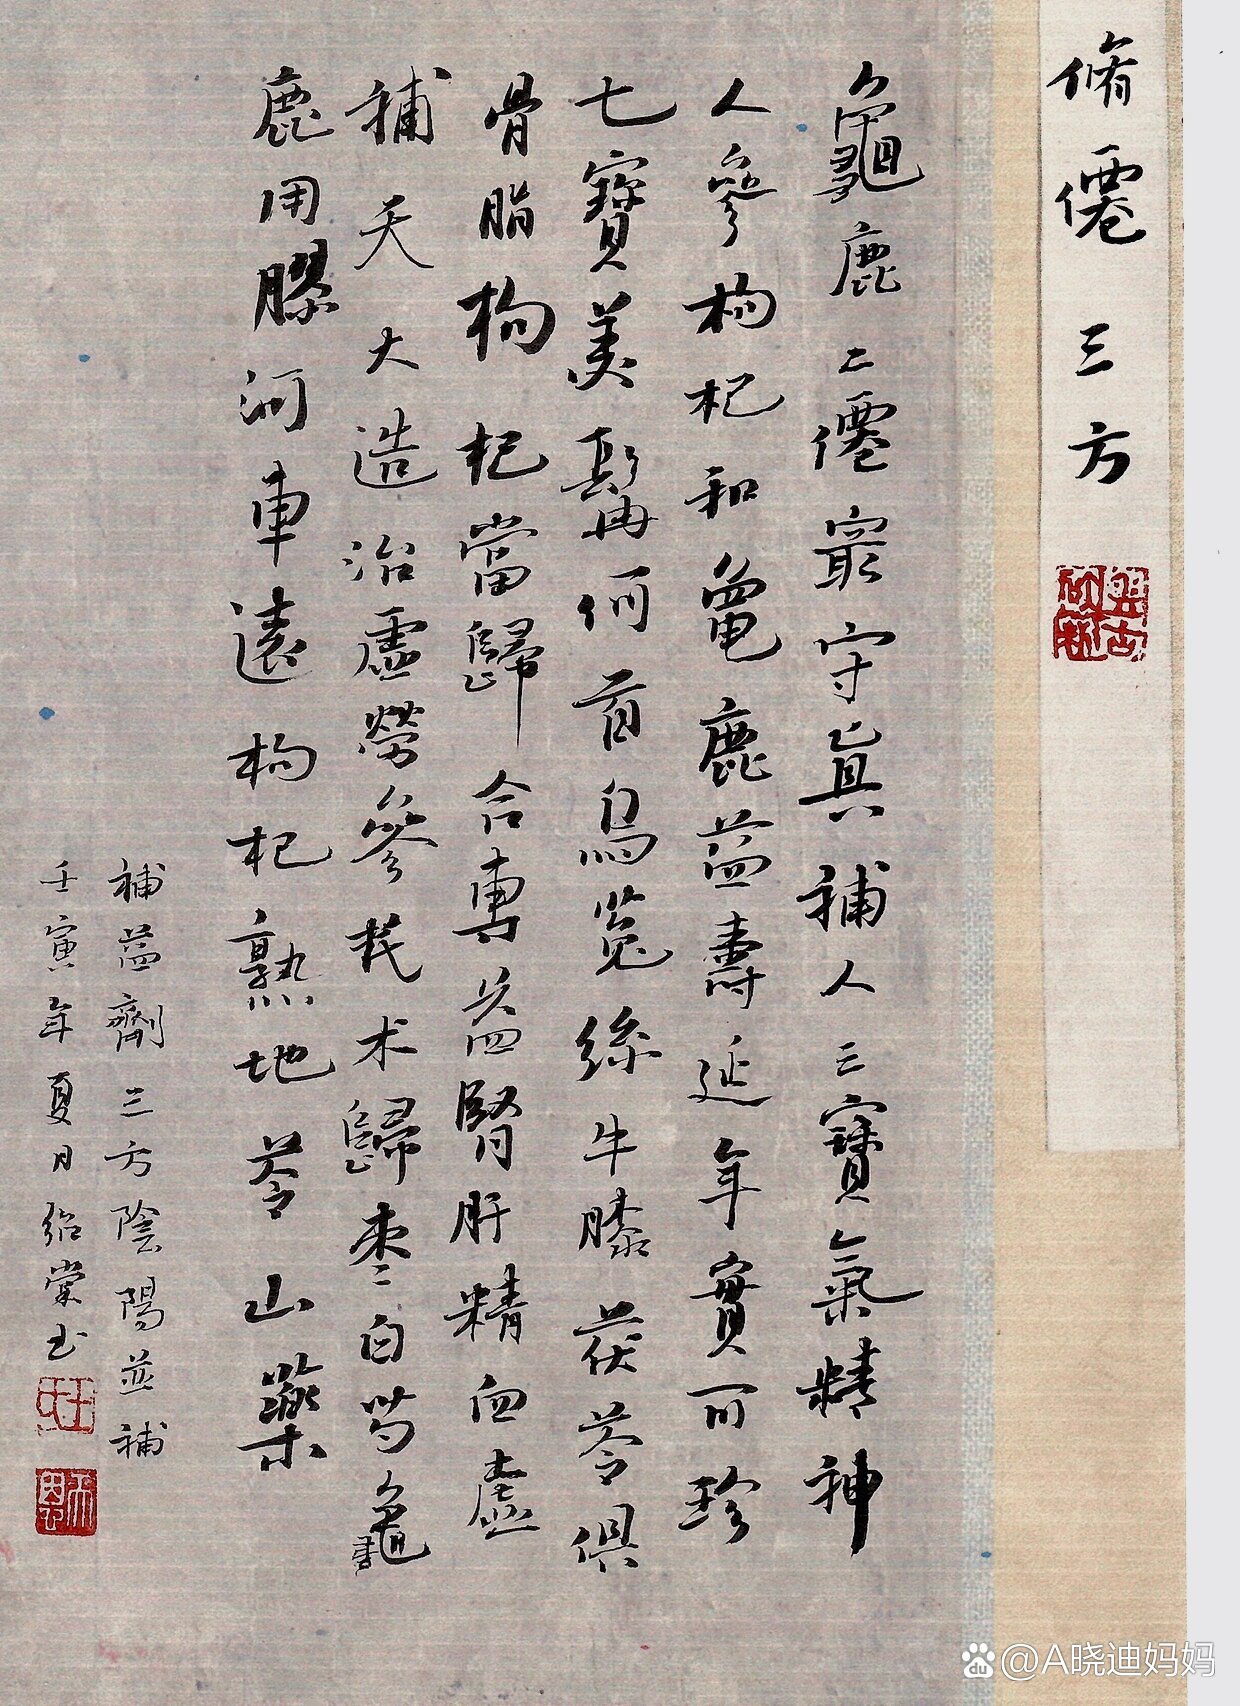 脩僊三方
龜鹿二僊最守真補人三寶氣精神
人參枸杞和龜鹿益壽延年實可珍
七寶美髯何首烏菟絲牛膝茯苓俱
骨脂枸杞當歸合專益腎肝精血虛
補天大造治虛勞參芪术歸棗白芍龜
鹿用膠河車遠枸杞熟地苓山藥
補益劑三方陰陽並補
壬寅年夏月紹棠書
@A晓迪妈妈